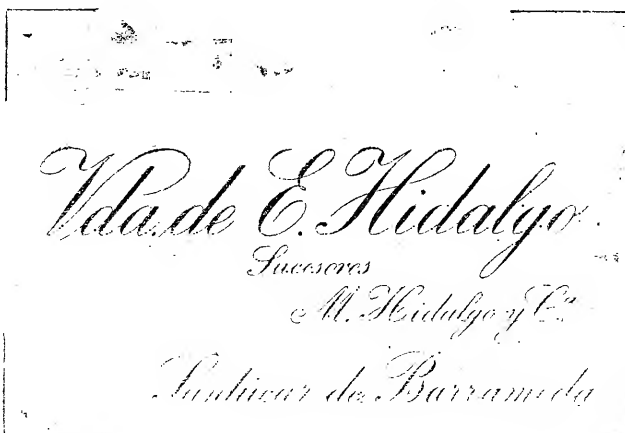 Vda. de E. Hidalgo
Sucesores
M. Hidalgo y Cª
Sanlúcar de Barrameda